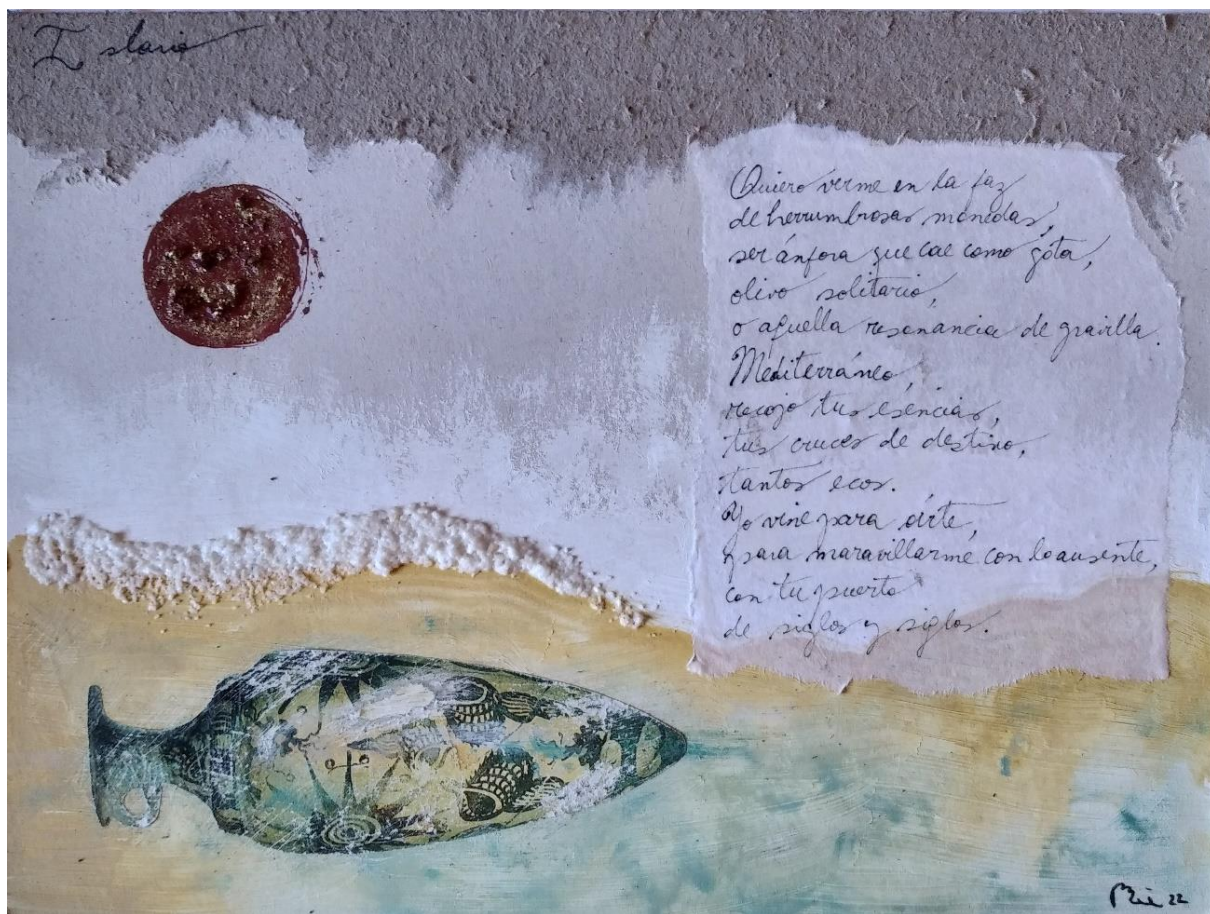 Islario
Quiero verme en la faz
de herrumbrosas monedas,
ser ánfora que cae como gota,
olivo solitario,
o aquella resonancia de gravilla.
Mediterráneo,
recojo tus esencias,
tus cruces de destino,
tantos ecos.
Yo vine para oírte,
y para maravillarme con lo ausente,
con tu puerto
de siglos y siglos.
22